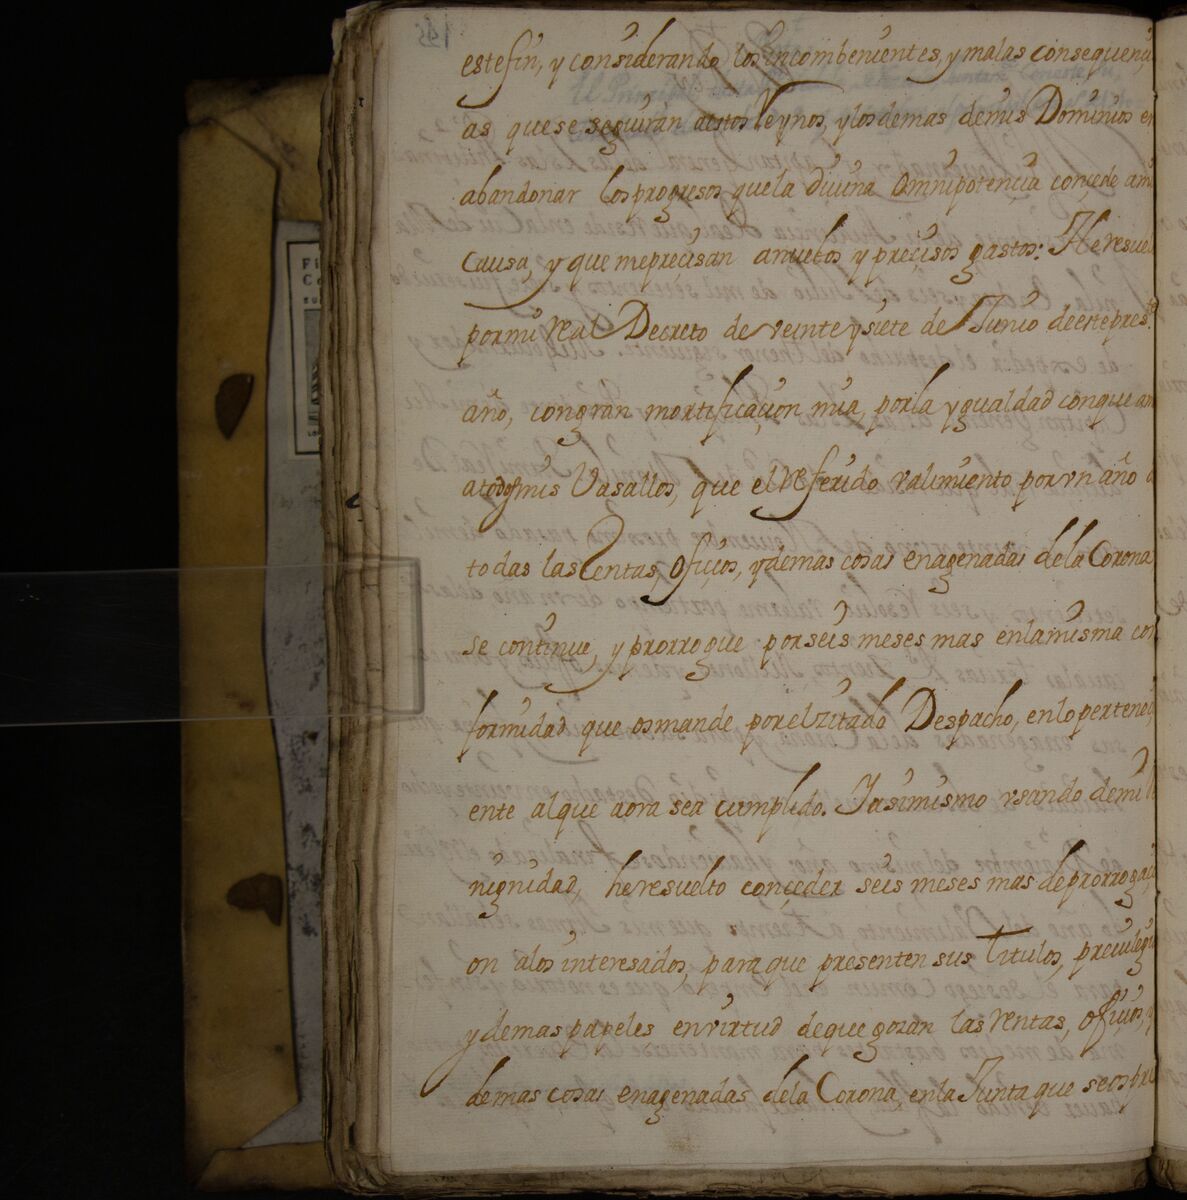 este fin, y considerando los incombenientes, y malas consequençi
as que se seguirán aestos Reynos, y los demas de mis Dominios en
abandonar los progresos que la diuina Omnipotençia conçede ami
causa, y que me preçisan anueuos y preçisos gastos: He resuel
por mi real Decreto de veinte y siete de Junio de este pres.te
año, con gran mortificaçion mia, por la ygualdad con que am
a todos mis Vasallos, que el referido valimiento por vn año d
todas las Rentas, ofiçios, y demas cosas enagenadas de la Corona
se continue, y prorrogue por seis meses mas en la misma con
formidad que os mande por el zitado Despacho, en lo perteneçi
ente al que aora sea cumplido. Y asimismo vsando de mi be
nignidad, he resuelto conçeder seis meses mas de prorrogaçi
on alos interesados, para que presenten sus titulos, preuilegio
y demas papeles en virtud de que gozan las rentas, ofiçios, y
demas cosas enagenadas de la Corona, en la Junta que se
145